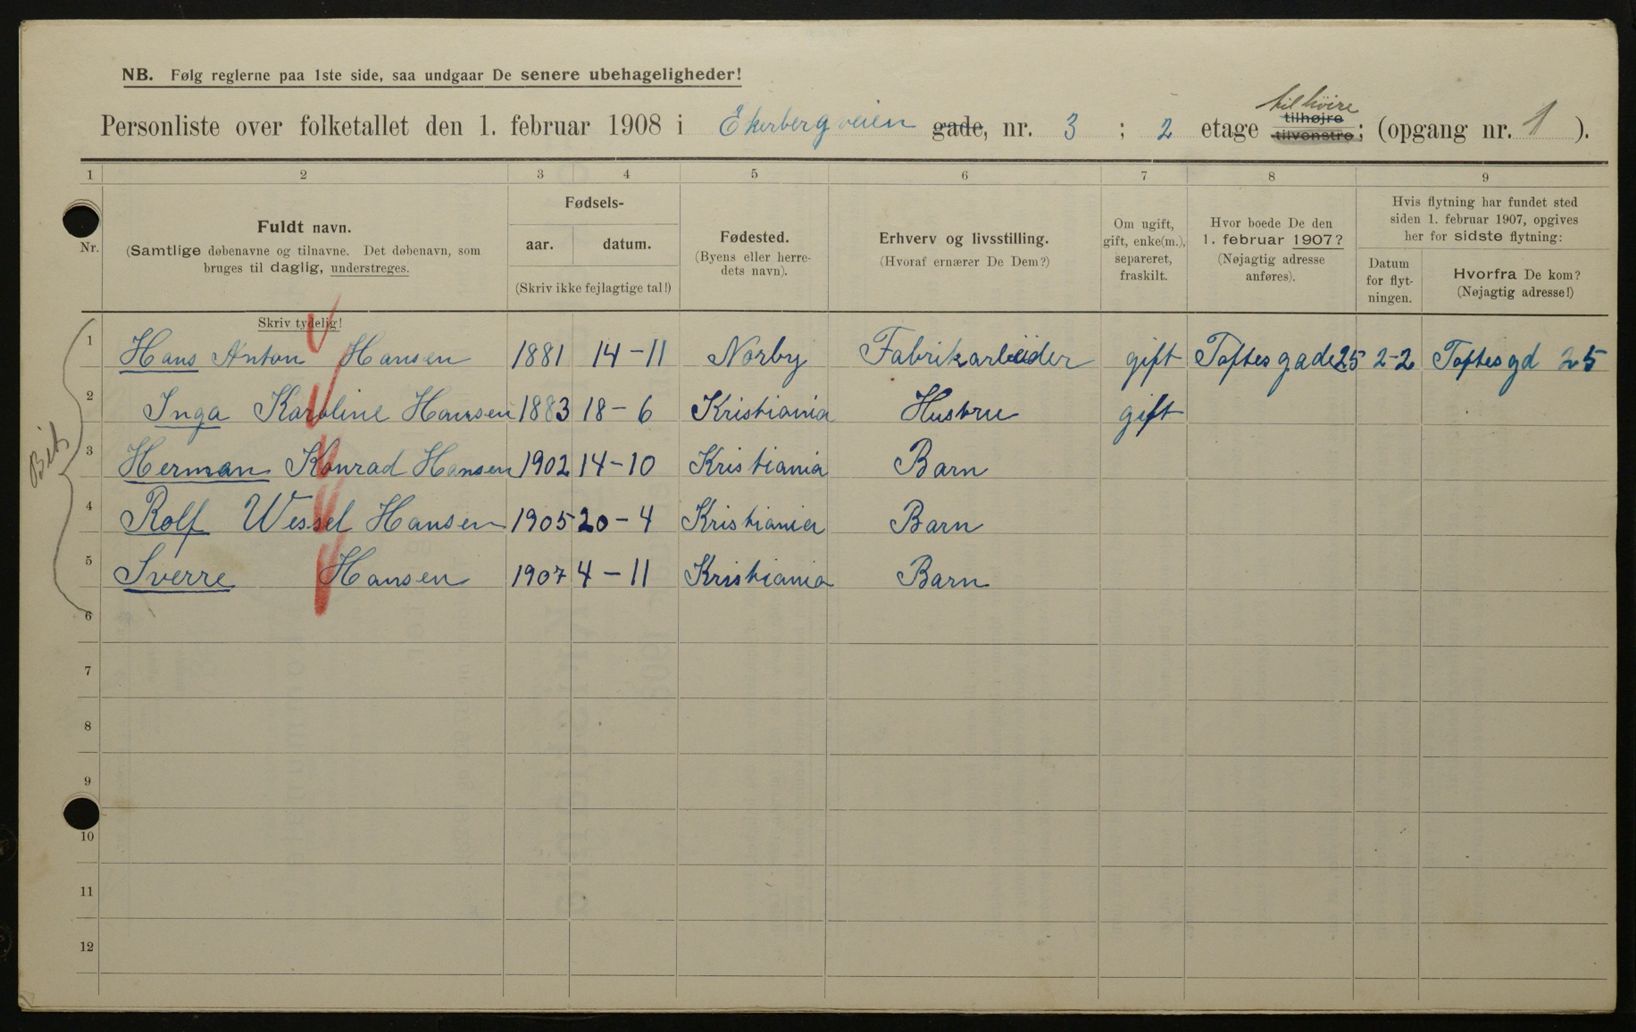 NB. Følg reglerne paa 1ste side, saa undgaar De senere ubehageligheder!
til höire
Personliste over folketallet den 1. februar 1908 i Ekerbergveien gade, nr. 3 ; 2 etage tilhøjre tilvenstre; (opgang nr. 1 ).
1 2 3 4 5 6 7 8 9
Nr.
Fuldt navn.
(Samtlige døbenavne og tilnavne. Det døbenavn, som
bruges til daglig, understreges.
Skriv tydelig!
Fødsels-
aar. datum.
(Skriv ikke fejlagtige tal!)
Fødested.
(Byens eller herre-
dets navn).
Erhverv og livsstilling.
(Hvoraf ernærer De Dem?)
Om ugift,
gift, enke(m.),
separeret,
fraskilt.
Hvor boede De den
1. februar 1907?
(Nøjagtig adresse
anføres).
Hvis flytning har fundet sted
siden 1. februar 1907, opgives
her for sidste flytning:
Datum
for flyt-
ningen.
Hvorfra De kom?
(Nøjagtig adresse!)
1 Hans Anton Hansen 1881 14-11 Norby Fabrikarbeider gift Toftesgade 25 2-2 Toftesgd 25
2 Inga Karoline Hansen 1883 18-6 Kristiania Hustru gift
3 Herman Konrad Hansen 1902 14-10 Kristiania Barn
4 Rolf Wessel Hansen 1905 20-4 Kristiania Barn
5 Sverre Hansen 1907 4-11 Kristiania Barn
6
7
8
9
10
11
12